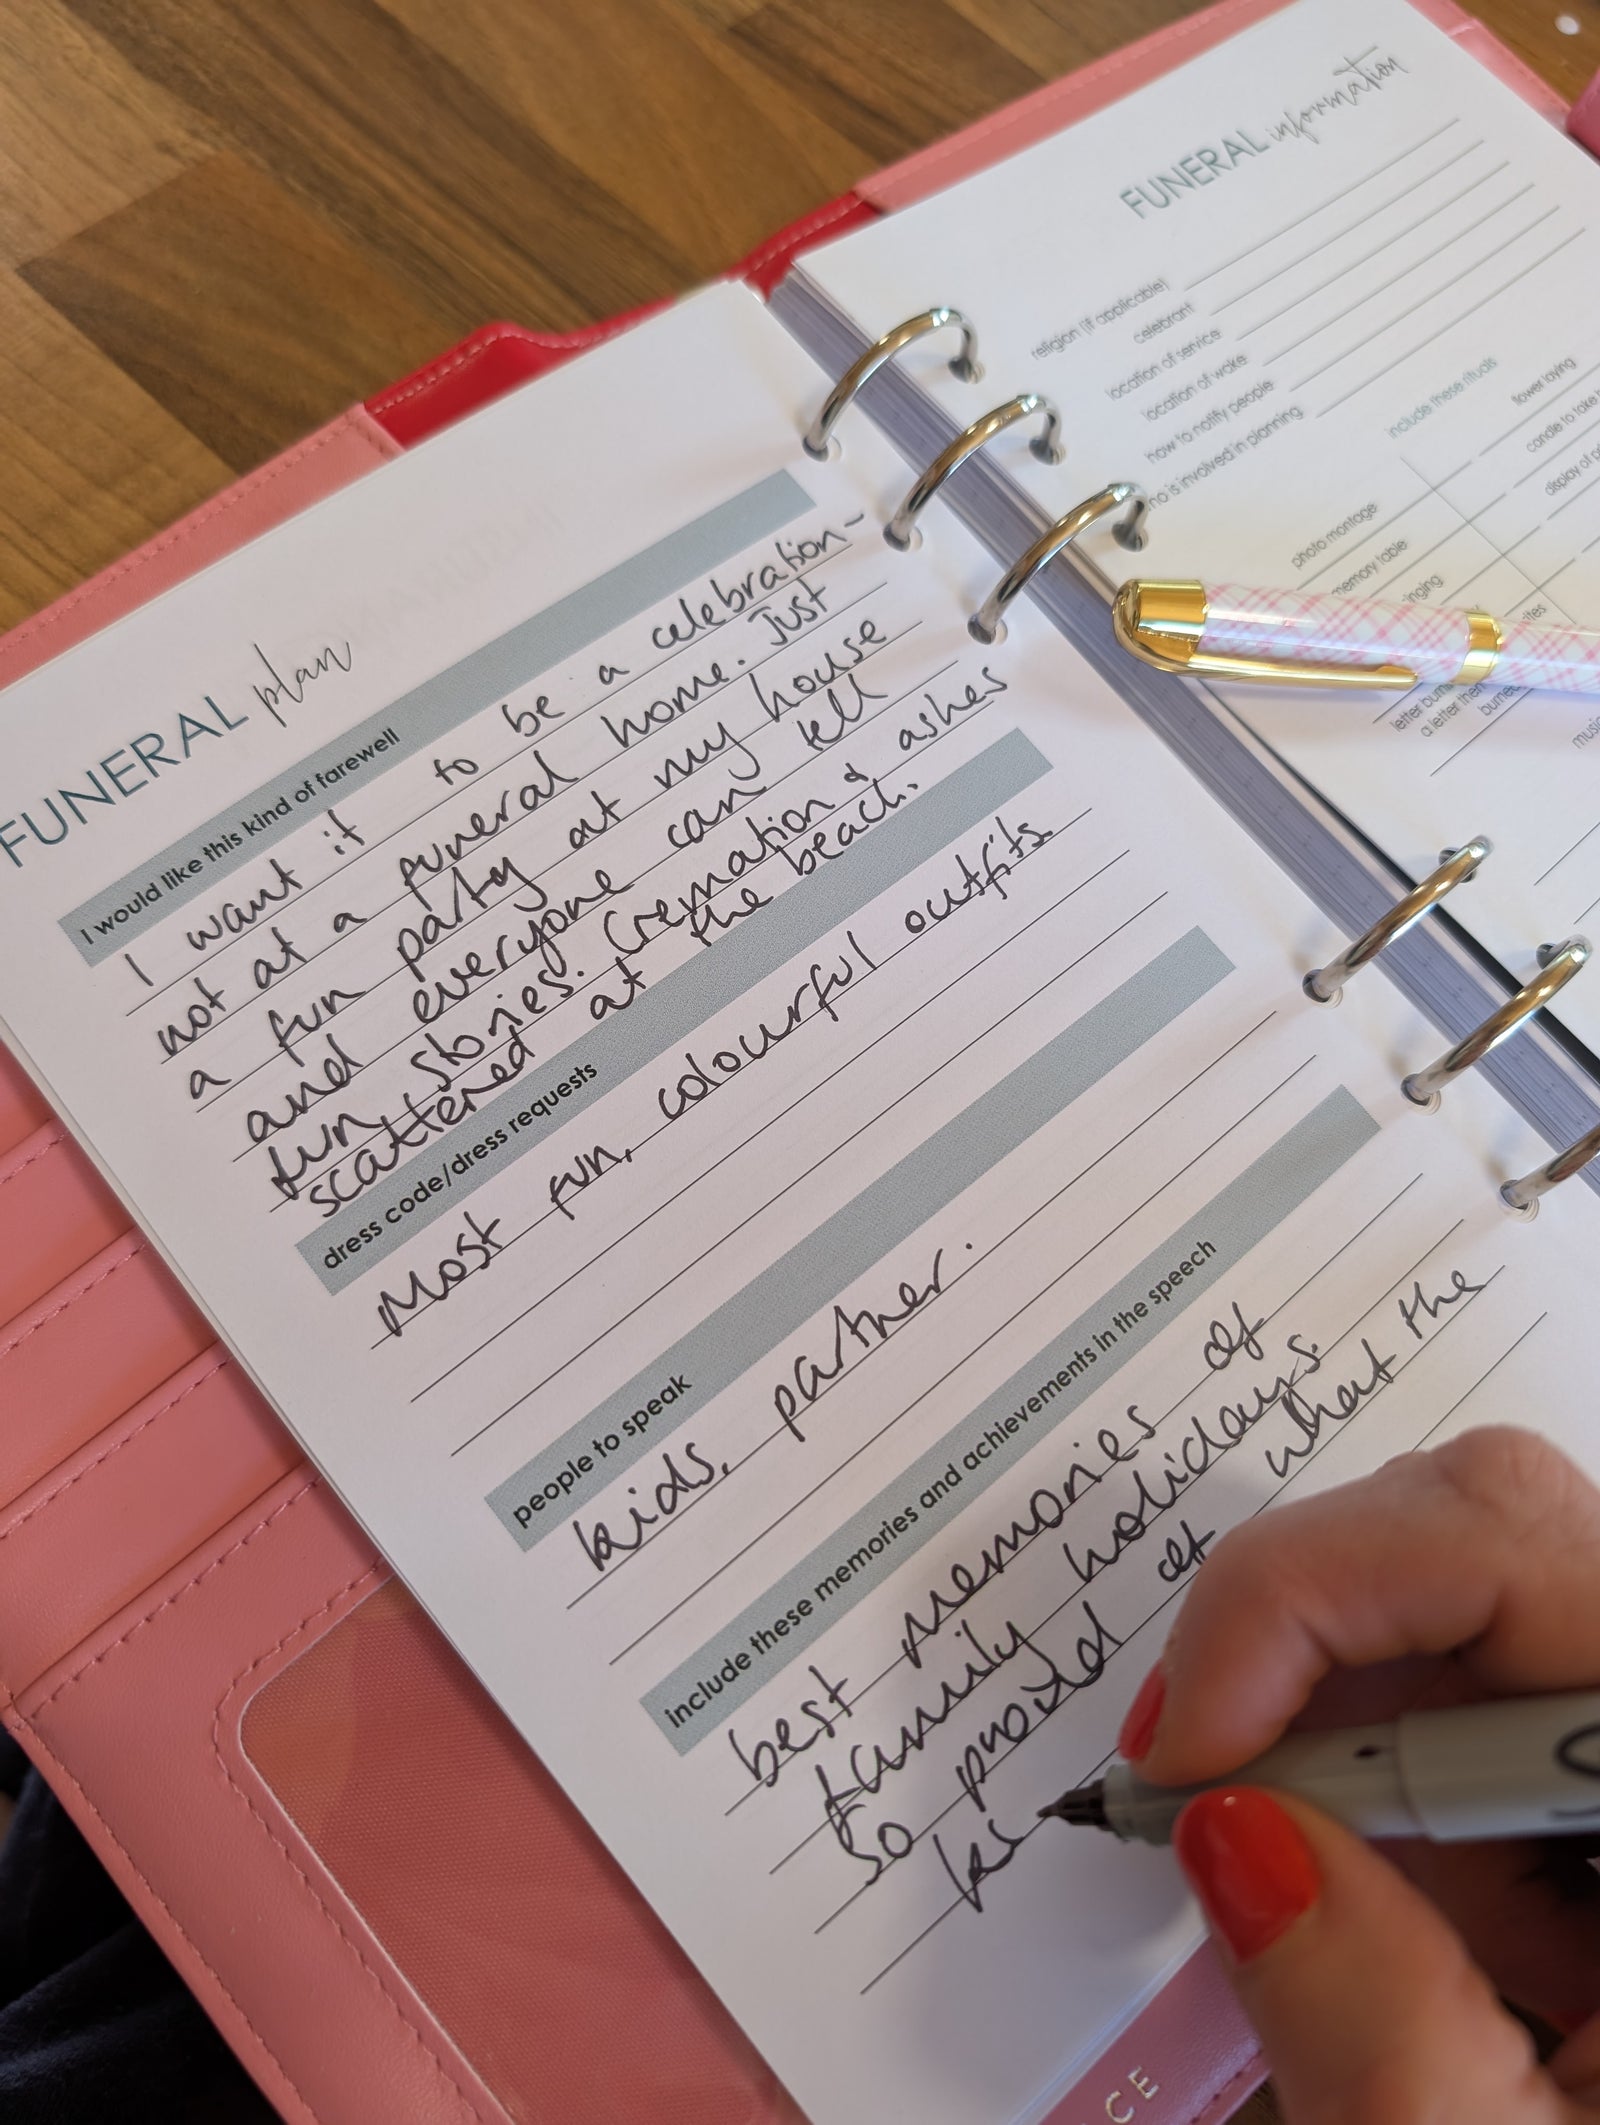 FUNERAL plan
I would like this kind of farewell
I want it to be a celebration-
not at a funeral home. Just
a fun party at my house
and everyone can tell
fun stories. Cremation & ashes
scattered at the beach.
dress code/dress requests
Most fun, colourful outfits
people to speak
kids, partner.
include these memories and achievements in the speech
best memories of
family holidays.
so proud of what the
FUNERAL information
religion (if applicable)
celebrant
location of service
location of wake
how to notify people
who is involved in planning
include these rituals
photo montage
memory table
flower laying
candle to take
display of
letter
a letter then
burned
CE